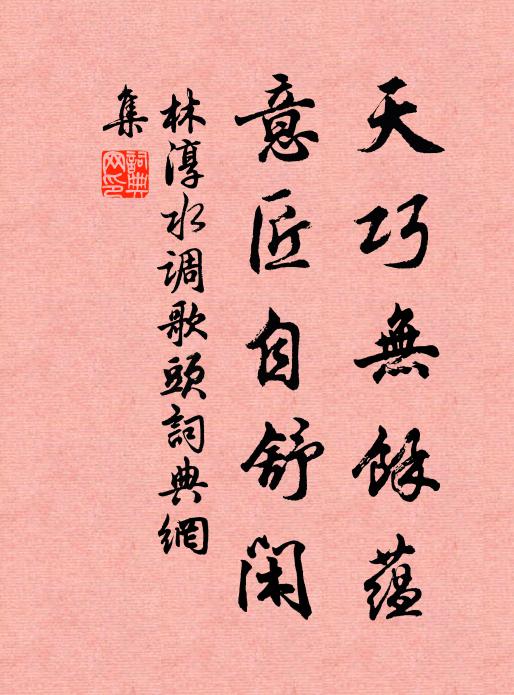 天巧無餘蘊
意匠自舒闲
林淳水调歌頭詞典網
集
詞典网印